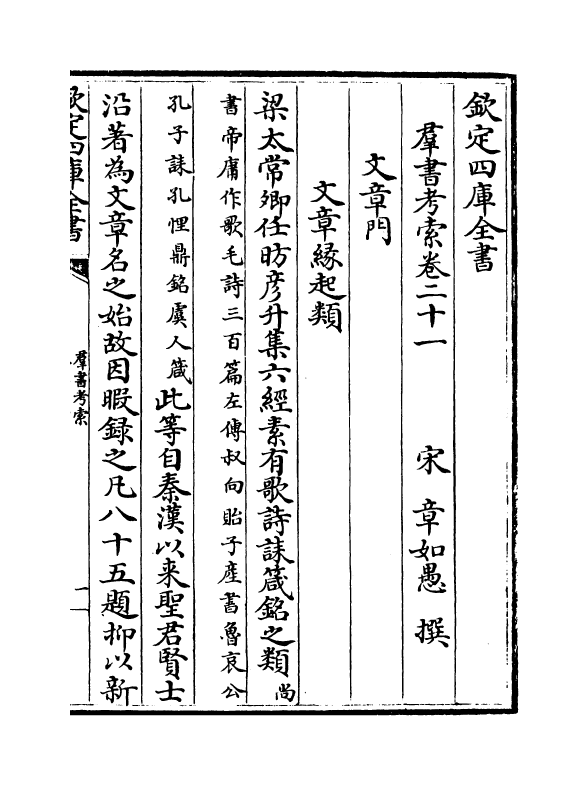 欽定四庫全書
羣書考索卷二十一　宋　章如愚　撰
文章門
文章緣起類
梁太常卿任昉彦升集六經素有歌詩誄箴銘之類尚
書帝庸作歌毛詩三百篇左傳叔向貽子産書魯哀公
孔子誄孔悝鼎銘虞人箴此等自秦漢以来聖君賢士
沿著為文章名之始故因暇録之凡八十五題抑以新
欽定四庫全書
羣書考索
一